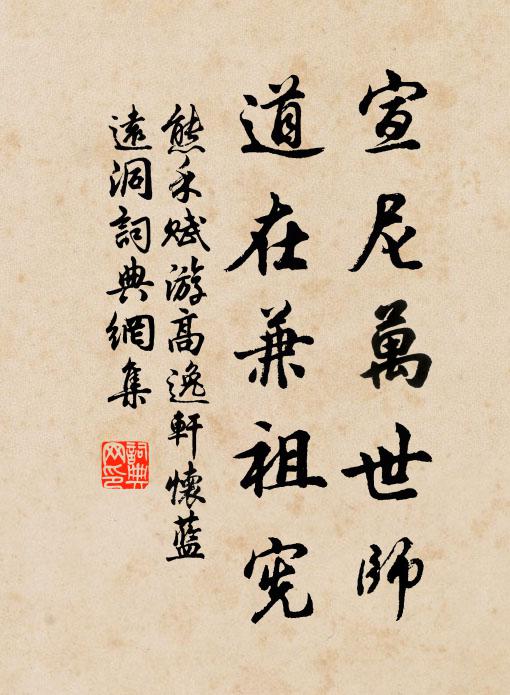 宣尼萬世師
道在兼祖宪
熊禾赋游高逸軒懷藍
遠洞詞典網集
詞典网印